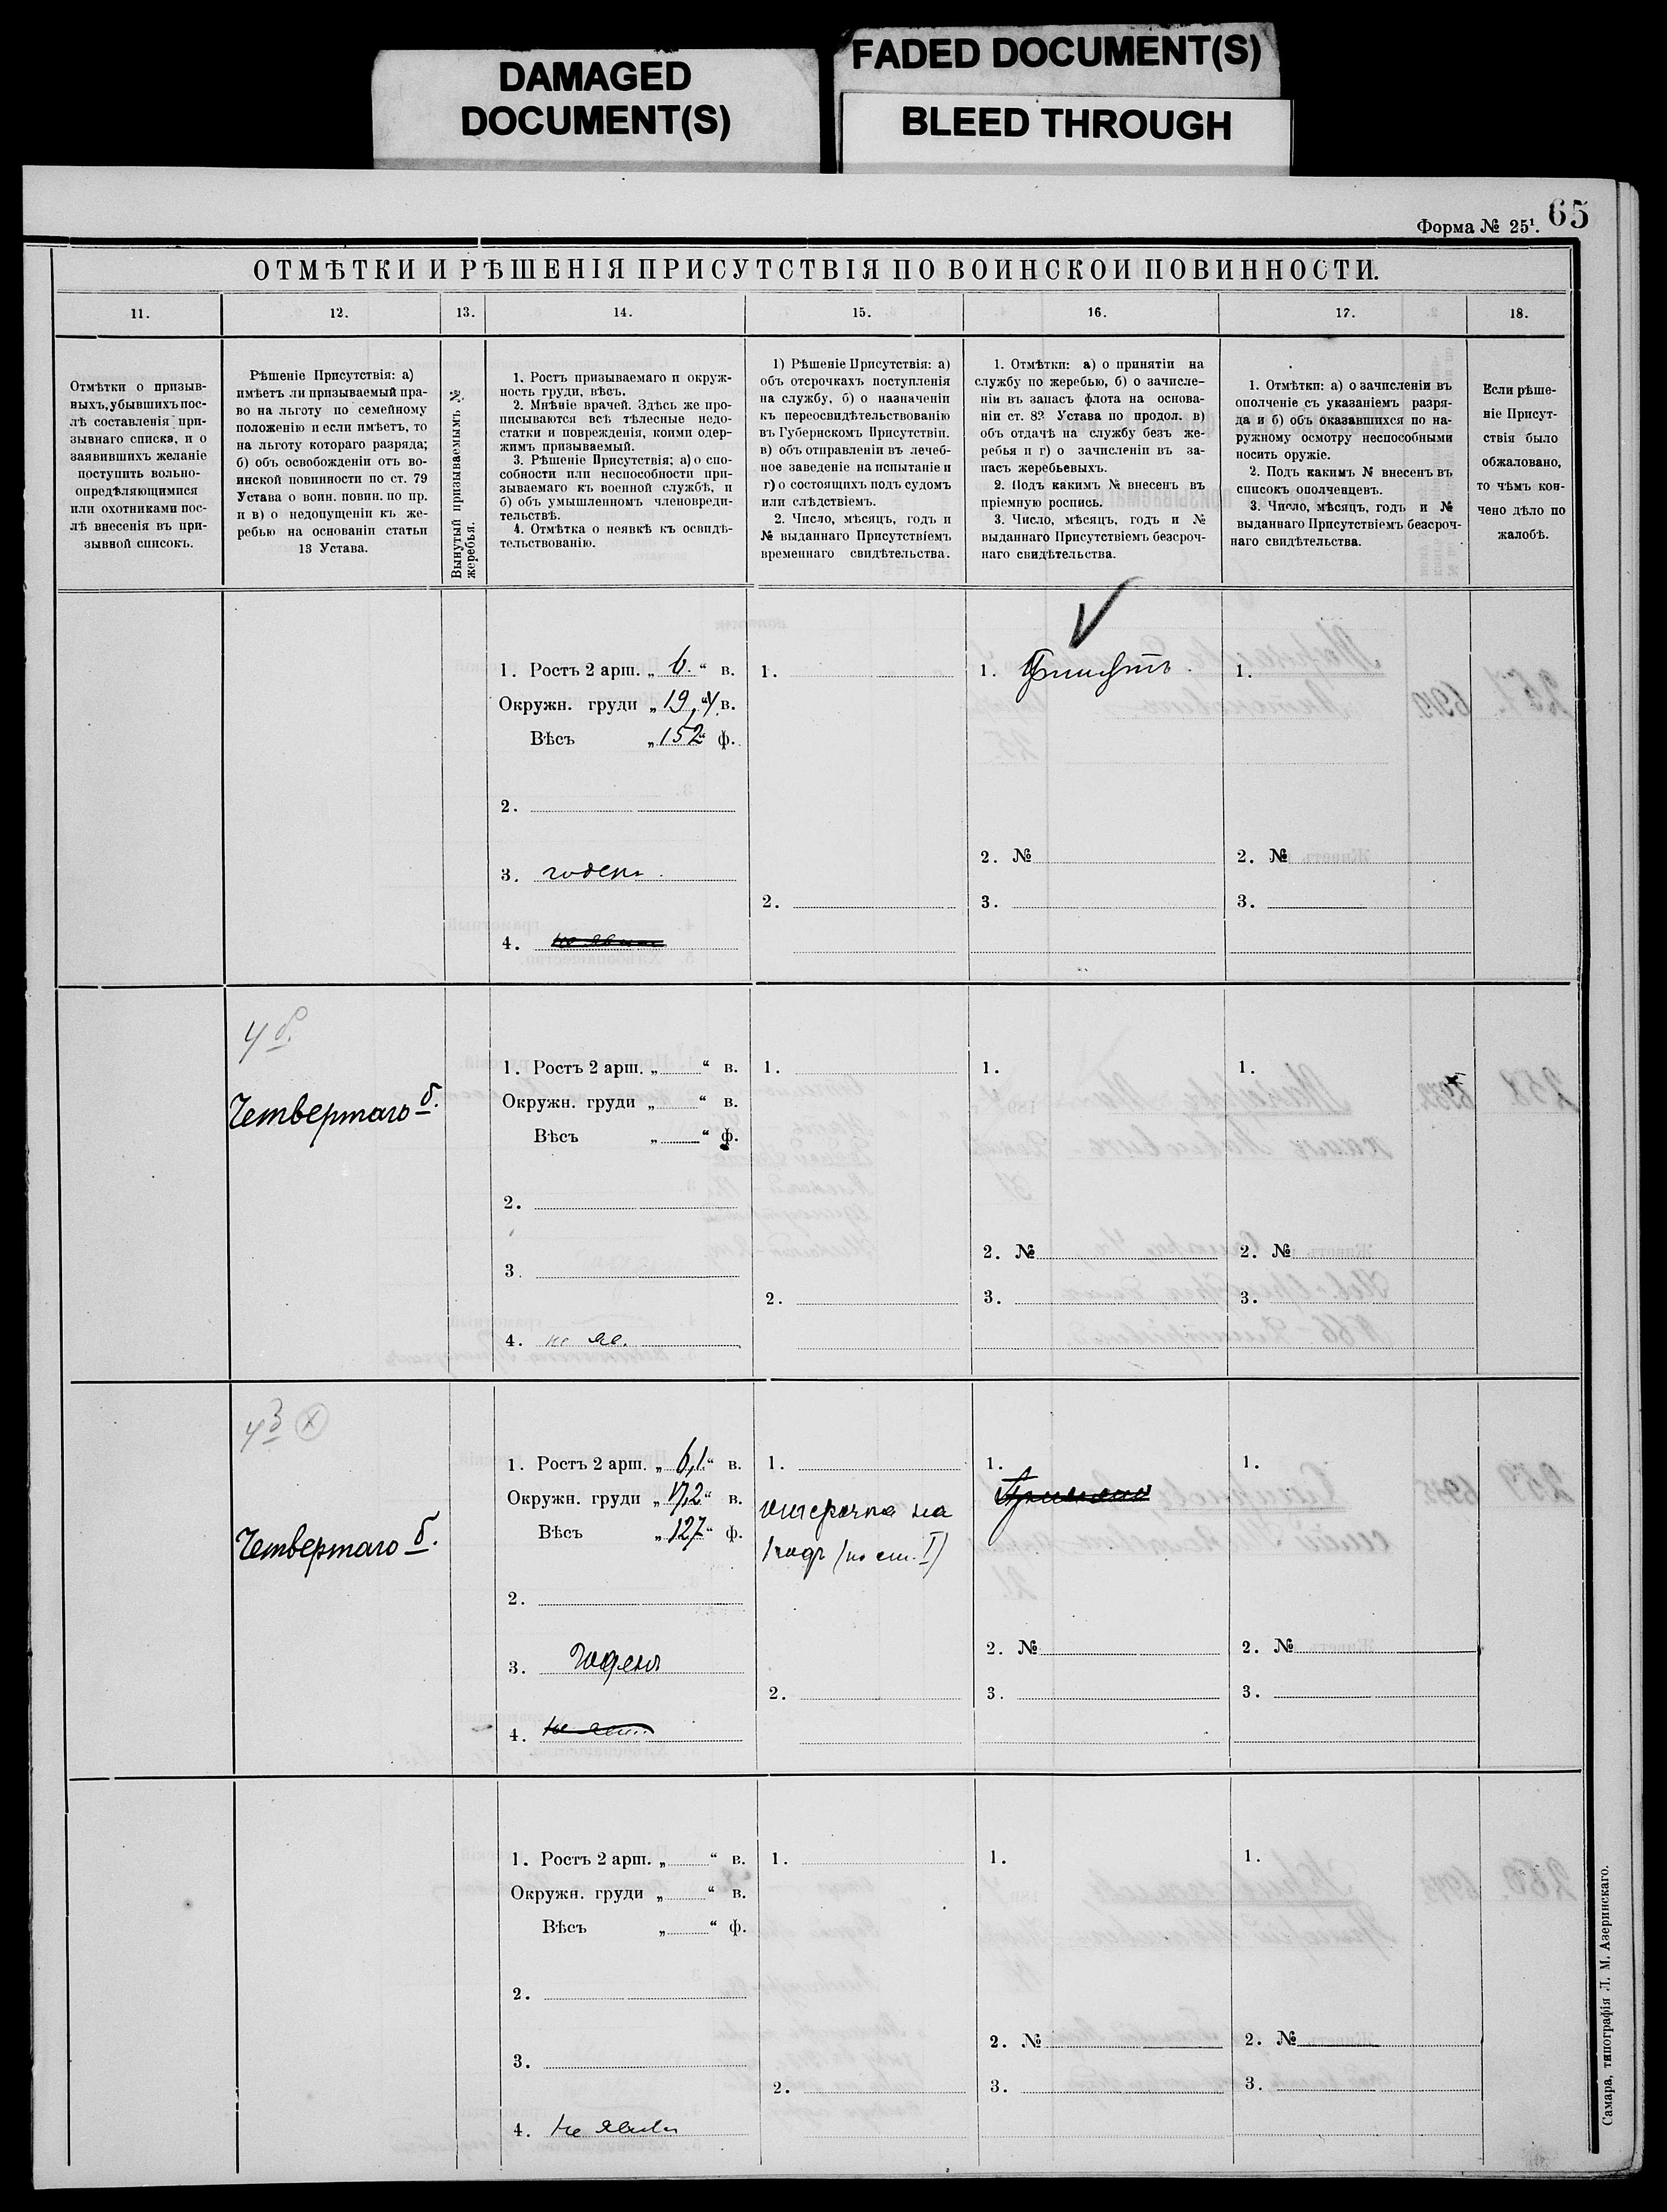 DAMAGED
DOCUMENT(S)
FADED DOCUMENT(S)
BLEED THROUGH
65
Форма № 25¹.
ОТМѢТКИ И РѢШЕНІЯ ПРИСУТСТВІЯ ПО ВОИНСКОИ ПОВИННОСТИ.
11.
12.
13.
14.
15.
16.
17.
18.
Отмѣтки о призыв-
ныхъ, убывшихъ пос-
лѣ составленія при-
зывнаго списка, и о
заявившихъ желаніе
поступить вольно-
опредѣляющимися
или охотниками пос-
лѣ внесенія въ при-
зывной списокъ.
Рѣшеніе Присутствія: а)
имѣетъ ли призываемый пра-
во на льготу по семейному
положенію и если имѣетъ, то
на льготу котораго разряда;
б) объ освобожденіи отъ во-
инской повинности по ст. 79
Устава о воин. повин. по пр.
и в) о недопущеніи къ же-
ребью на основаніи статьи
13 Устава.
Вынутый призываемымъ №
жеребья.
1. Ростъ призываемаго и окруж-
ность груди, вѣсъ.
2. Мнѣніе врачей. Здѣсь же про-
писываются всѣ тѣлесные недо-
статки и поврежденія, коими одер-
жимъ призываемый.
3. Рѣшеніе Присутствія; а) о спо-
собности или неспособности при-
зываемаго къ военной службѣ, и
б) объ умышленномъ членовреди-
тельствѣ.
4. Отмѣтка о неявкѣ къ освидѣ-
тельствованію.
1) Рѣшеніе Присутствія: а)
объ отсрочкахъ поступленія
на службу, б) о назначеніи
къ переосвидѣтельствованію
въ Губернскомъ Присутствіи.
в) объ отправленіи въ лечеб-
ное заведеніе на испытаніе и
г) о состоящихъ подъ судомъ
или слѣдствіемъ.
2. Число, мѣсяцъ, годъ и
№ выданнаго Присутствіемъ
временнаго свидѣтельства.
1. Отмѣтки: а) о принятіи на
службу по жеребью, б) о зачисле-
ніи въ запасъ флота на основа-
ніи ст. 82 Устава по продол. в)
объ отдачѣ на службу безъ же-
ребья и г) о зачисленіи въ за-
пасъ жеребьевыхъ.
2. Подъ какимъ № внесенъ въ
пріемную роспись.
3. Число, мѣсяцъ, годъ и №
выданнаго Присутствіемъ безсроч-
наго свидѣтельства.
1. Отмѣтки: а) о зачисленіи въ
ополченіе съ указаніемъ разря-
да и б) объ оказавшихся по на-
ружному осмотру неспособными
носить оружіе.
2. Подъ какимъ № внесенъ въ
списокъ ополченцевъ.
3. Число, мѣсяцъ, годъ и №
выданнаго Присутствіемъ безсроч-
наго свидѣтельства.
Если рѣше-
ніе Присут-
ствія было
обжаловано,
то чѣмъ кон-
чено дѣло по
жалобѣ.
1. Ростъ 2 арш. „ 6. “ в.
Окружн. груди „ 19,4 в.
Вѣсъ „ 152 “ ф.
2.
3. годенъ.
4.
1.
2.
1. Принятъ.
2. №
3.
1.
2. №
3.
4 б.
Четвертаго б.
1. Ростъ 2 арш. „ “ в.
Окружн. груди „ “ в.
Вѣсъ „ “ ф.
2.
3.
4. не яв.
1.
2.
1.
2. №
3.
1.
2. №
3.
Четвертаго б.
1. Ростъ 2 арш. „ 6,1 “ в.
Окружн. груди „ 17,2 “ в.
Вѣсъ „ 127 “ ф.
2.
3. Годенъ
4. не яв
1.
отсрочка на
1 годъ (по ст. I)
2.
1.
2. №
3.
1.
2. №
3.
1. Ростъ 2 арш. „ “ в.
Окружн. груди „ “ в.
Вѣсъ „ “ ф.
2.
3.
4. Не явился
1.
2.
1.
2. №
3.
1.
2. №
3.
Самара, типографія Л. М. Азеринскаго.